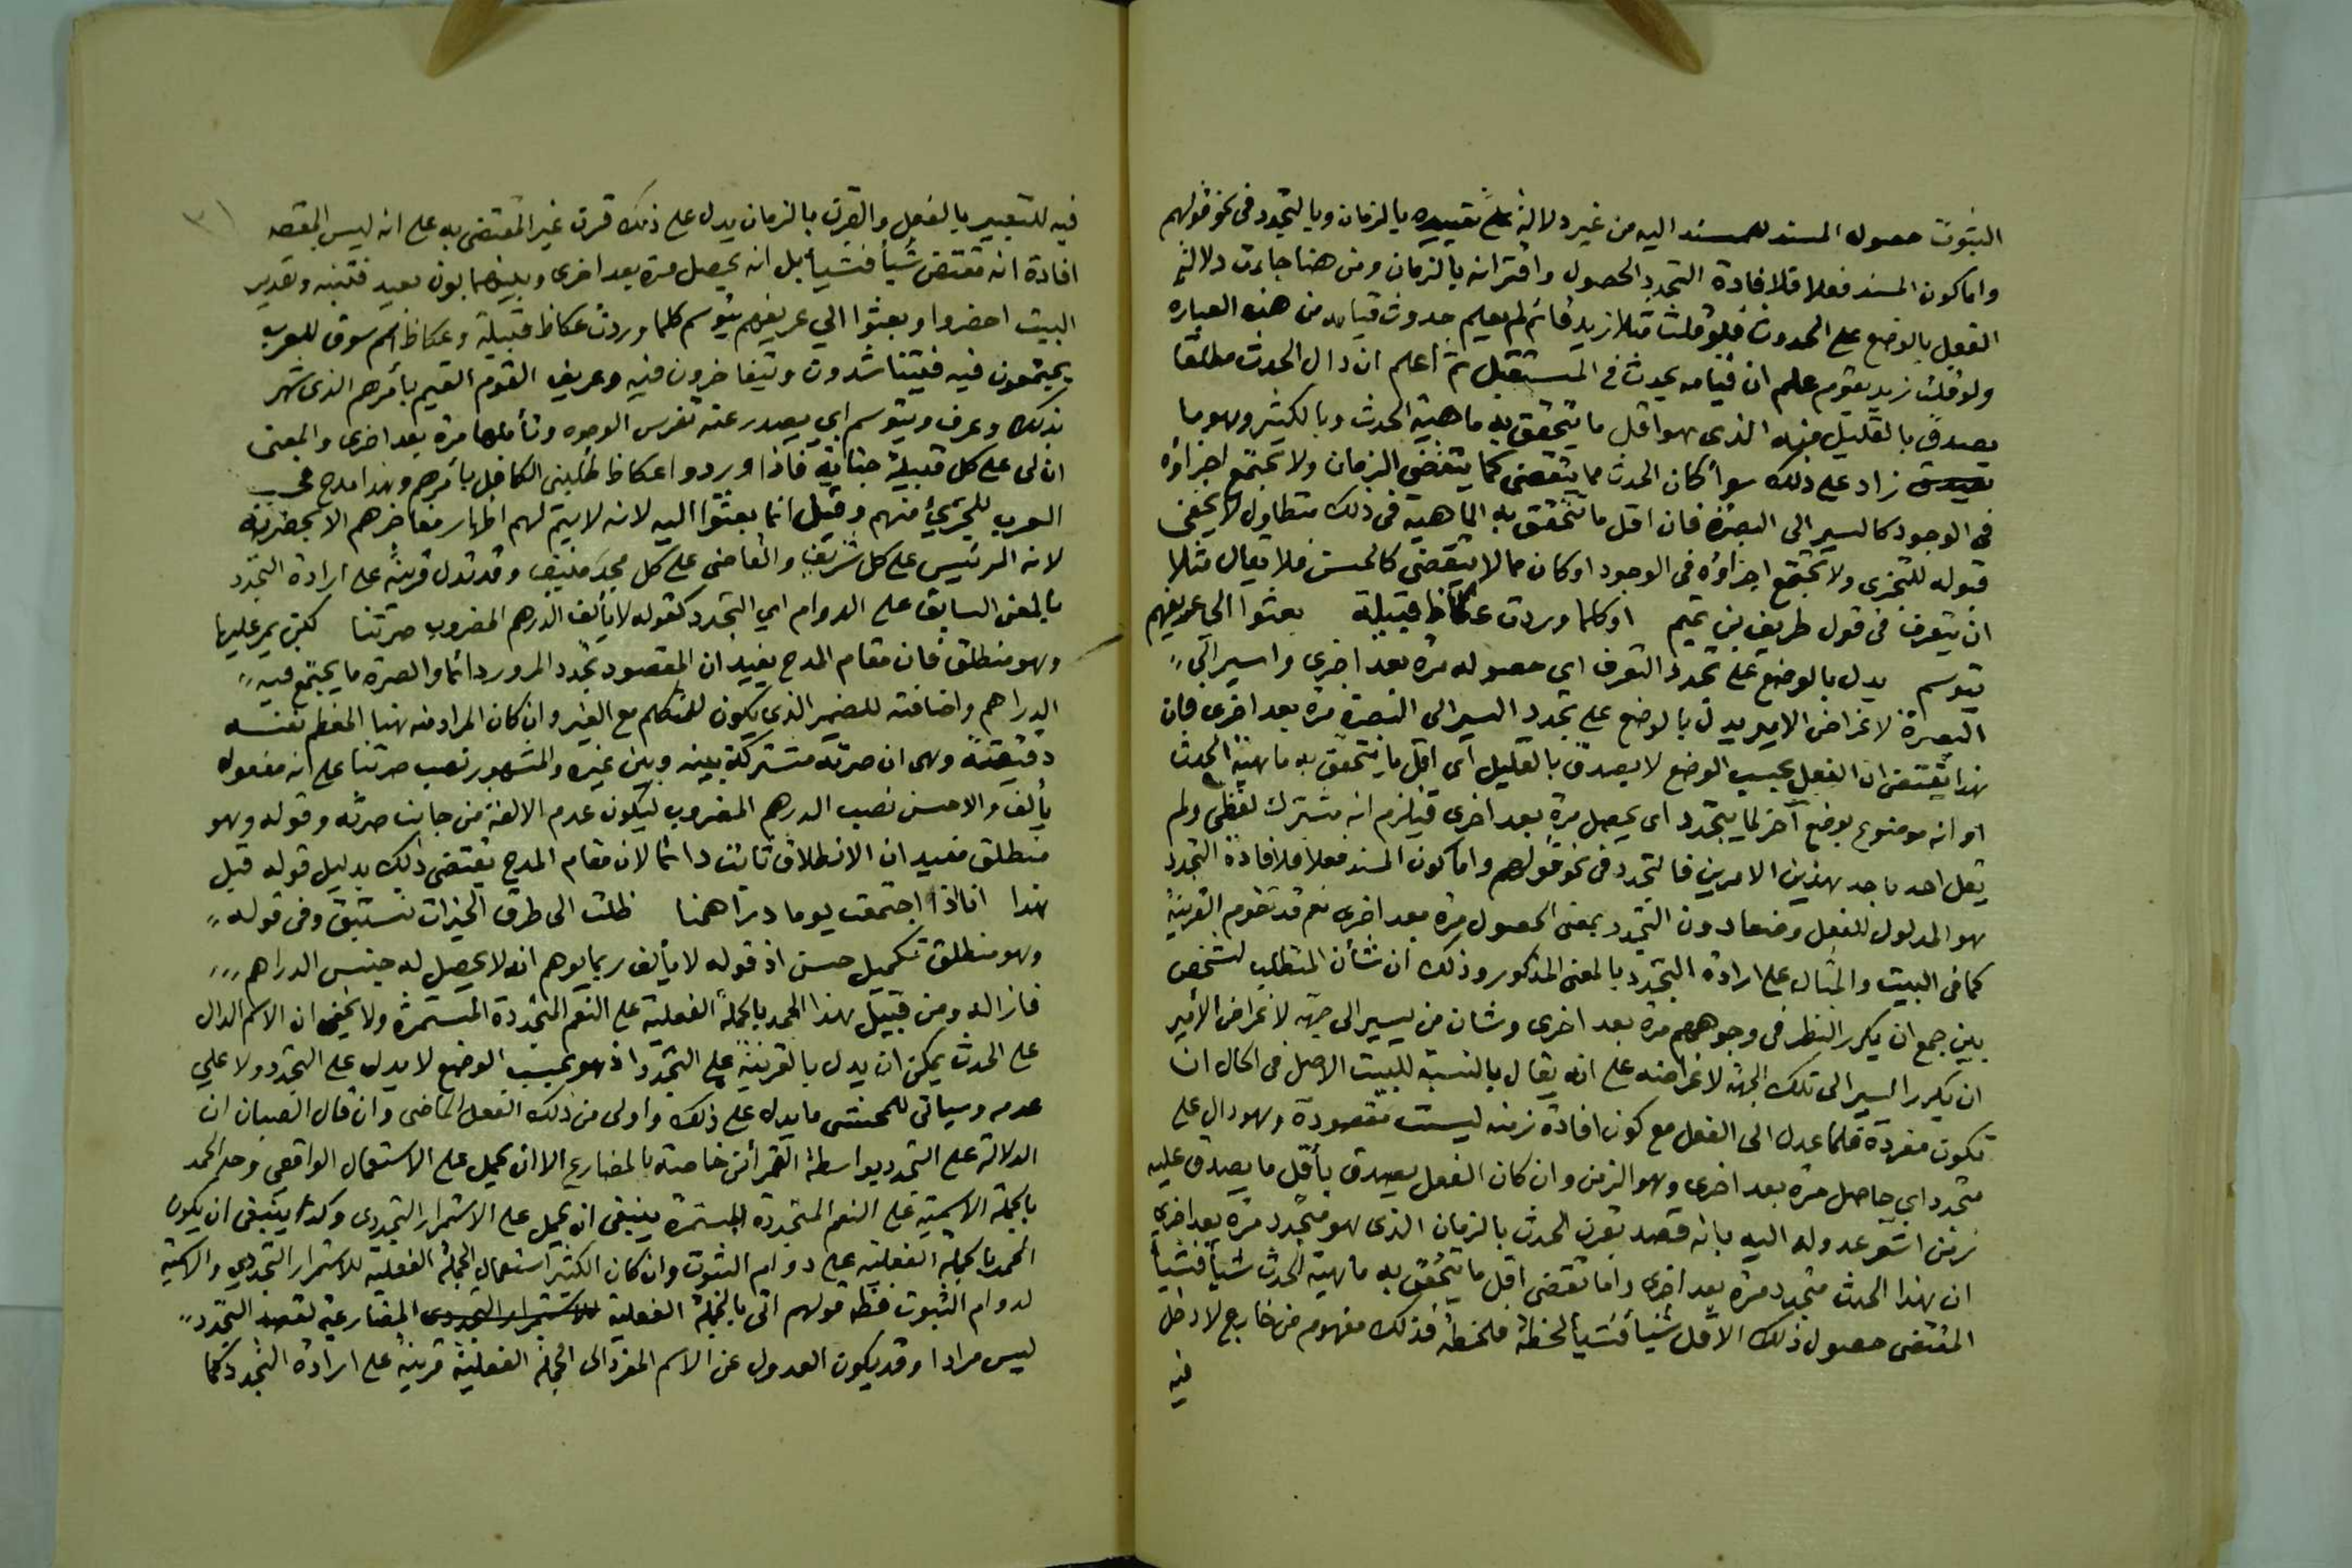 الثبوت حصول المسند للمسند اليه من غير دلالة على تقييده بالزمان وبالتجدد فى نحو قولهم
واما كون المسند فعلا فلافادة التجدد الحصول واقترانه بالزمان ومن هنا جاءت دلالة
الفعل بالوضع على الحدوث فلو قلت مثلا زيد قائم لم يعلم حدوث قيامه من هذه العبارة
ولو قلت زيد يقوم علم ان قيامه يحدث فى المستقبل ثم اعلم ان دال الحدث مطلقا
يصدق بالقليل منه الذى هو اقل ما يتحقق به ماهية الحدث وبالكثير وهو ما
زاد على ذلك سواء كان الحدث مما ينقضى كما ينقضى الزمان ولا تجتمع اجزاؤه
فى الوجود كالسير الى البصرة فان اقل ما تتحقق به الماهية فى ذلك متطاول لا يخفى
قبوله للتجزى ولا تجتمع اجزاؤه فى الوجود او كان مما لا ينقضى فلا يقال مثلا
ان يتعرف فى قول طريف بن تميم اوكلما وردت عكاظ قبيلة بعثوا الى عريفهم
يتوسم يدل بالوضع على تجدد التعرف اى حصوله مرة بعد اخرى واسير الى
البصرة لاغراض الامير يدل بالوضع على تجدد السير الى البصرة مرة بعد اخرى فان
هذا يقتضى ان الفعل بحسب الوضع لا يصدق بالقليل اى اقل ما يتحقق به ماهية الحدث
او انه موضوع بوضع آخر لما يتجدد اى يحصل مرة بعد اخرى فيلزم انه مشترك لفظى ولم
يقل احد باحد هذين الامرين فالتجدد فى نحو قولهم واما كون المسند فعلا فلافادة التجدد
هو المدلول للفعل وضعا دون التجدد بمعنى الحصول مرة بعد اخرى نعم قد تقوم القرينة
كما فى البيت والمثال على ارادة التجدد بالمعنى المذكور وذلك ان شأن المتطلب لشخص
بين جمع ان يكرر النظر فى وجوههم مرة بعد اخرى وشان من يسير الى جهة لاغراض الأمير
ان يكرر السير الى تلك الجهة لاغراضه على انه يقال بالنسبة للبيت الاصل فى الحال ان
تكون مفردة فلما عدل الى الفعل مع كون افادة زمنه ليست مقصودة وهو دال على
متجدد اى حاصل مرة بعد اخرى وهو الزمن وان كان الفعل يصدق بأقل ما يصدق عليه
زمن اشعر عدوله اليه بانه قصد بقرن الحدث بالزمان الذى هو متجدد مرة بعد اخرى
ان هذا الحدث متجدد مرة بعد اخرى واما تقضى اقل ما يتحقق به ماهية الحدث شيأ فشيأ
المقتضى حصول ذلك الاقل شيأ فشيأ لحظة فلحظة فذلك مفهوم من خارج لا دخل
فيه
فيه للتعبير بالفعل والقرن بالزمان يدل على ذلك قرن غير المقتضى به على انه ليس المقصد
افادة انه مقتض شيأ فشيأ بل انه يحصل مرة بعد اخرى وبينهما بون بعيد فتنبه وتقدير
البيت احضروا وبعثوا الي عريفهم يتوسم كلما وردت عكاظ قبيلة وعكاظ اسم سوق للعرب
يجتمعون فيه فيتناشدون ويتفاخرون فيه وعريف القوم القيم بأمرهم الذى شهر
بذلك وعرف ويتوسم اى يصدر عنه تفرس الوجوه وتأملها مرة بعد اخرى والمعنى
ان لى على كل قبيلة جناية فاذا وردوا عكاظ طلبنى الكافل بأمرهم وهذا مدح عجيب
العرب للجرئ منهم وقيل انما بعثوا اليه لانه لا يتم لهم اظهار مفاخرهم الا بحضرته
لانه الرئيس على كل شريف والقاضى على كل مجد منيف وقد تدل قرينة على ارادة التجدد
بالمعنى السابق على الدوام اى التجدد كقوله لا يألف الدرهم المضروب صرتنا لكن يمر عليها
وهو منطلق فان مقام المدح يفيد ان المقصود تجدد المرور دائما والصرة ما يجتمع فيه
الدراهم واضافته للضمير الذى يكون للمتكلم مع الغير وان كان المراد منه هنا المعظم نفسه
دقيقة وهى ان صرته مشتركة بينه وبين غيره والمشهور نصب صرتنا على انه مفعول
يألف والاحسن نصب الدرهم المضروب ليكون عدم الالفة من جانب صرته وقوله وهو
منطلق مفيد ان الانطلاق ثابت دائما لان مقام المدح يقتضى ذلك بدليل قوله قبل
هذا انا اذا اجتمعت يوما دراهمنا ظلت الى طرق الخيرات تستبق وفى قوله
وهو منطلق تكميل حسن اذ قوله لا يألف ربما يوهم انه لا يحصل له جنس الدراهم
فازاله ومن قبيل هذا الحمد بالجملة الفعلية على النعم المتجددة المستمرة ولا يخفى ان الاسم الدال
على الحدث يمكن ان يدل بالقرينة على التجدد اذ هو بحسب الوضع لا يدل على التجدد ولا على
عدمه وسياتى للمحشى ما يدل على ذلك واولى من ذلك الفعل الماضى وان قال الصبان ان
الدلالة على التجدد بواسطة القرائن خاصة بالمضارع الا ان يحمل على الاستعمال الواقعى وحمد الحمد
بالجملة الاسمية على النعم المتجددة المستمرة ينبغى ان يحمل على الاستمرار التجددى وكذا ينبغى ان يكون
الحمد بالجملة الفعلية على دوام الثبوت وان كان الكثير استعمال الجملة الفعلية للاستمرار التجددى والاسمية
لدوام الثبوت فظهر قولهم اتى بالجملة الفعلية للاستمرار التجددى المضارعية لقصد التجدد
ليس مرادا وقد يكون العدول عن الاسم المفرد الى الجملة الفعلية قرينة على ارادة التجدد كما